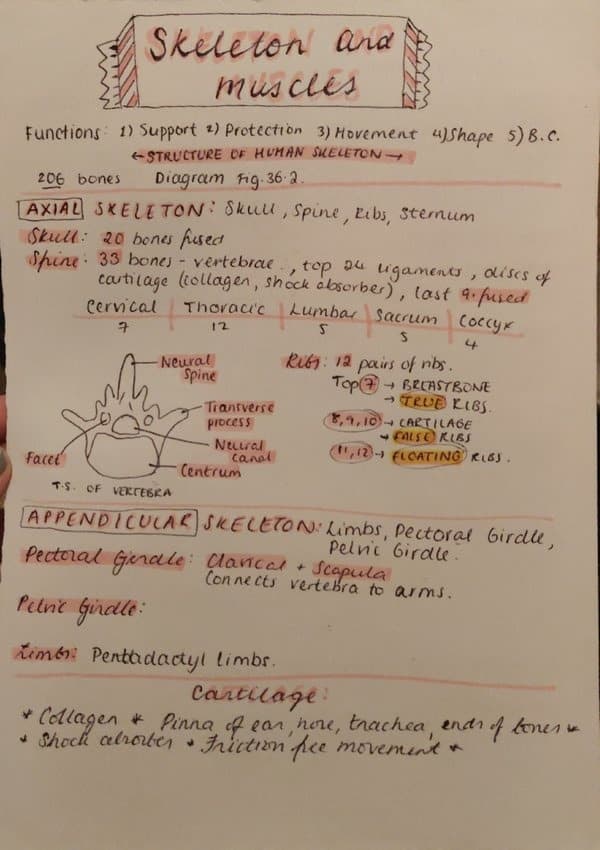 Skeleton and
muscles
Functions: 1) Support 2) Protection 3) Movement 4) Shape 5) B.C.
←STRUCTURE OF HUMAN SKELETON→
206 bones Diagram Fig. 36.2.
AXIAL SKELETON: Skull, Spine, Ribs, Sternum
Skull: 20 bones fused
Spine: 33 bones - vertebrae., top 24 ligaments, discs of
cartilage (collagen, shock absorber), last 9 fused
Cervical | Thoracic | Lumbar | Sacrum | Coccyx
7 12 5 5 4
Neural
Spine
Transverse
process
Neural
canal
Centrum
Facet
T.S. OF VERTEBRA
Ribs: 12 pairs of ribs.
Top 7 → BREASTBONE
→ TRUE RIBS.
8, 9, 10 → CARTILAGE
→ FALSE RIBS
11, 12 → FLOATING RIBS.
APPENDICULAR SKELETON: Limbs, Pectoral Girdle,
Pelvic Girdle.
Pectoral Girdle: Clavical + Scapula
Connects vertebra to arms.
Pelvic Girdle:
Limbs: Pentadactyl limbs.
Cartilage:
* Collagen * Pinna of ear, nose, trachea, ends of bones *
* Shock absorber * Friction free movement *